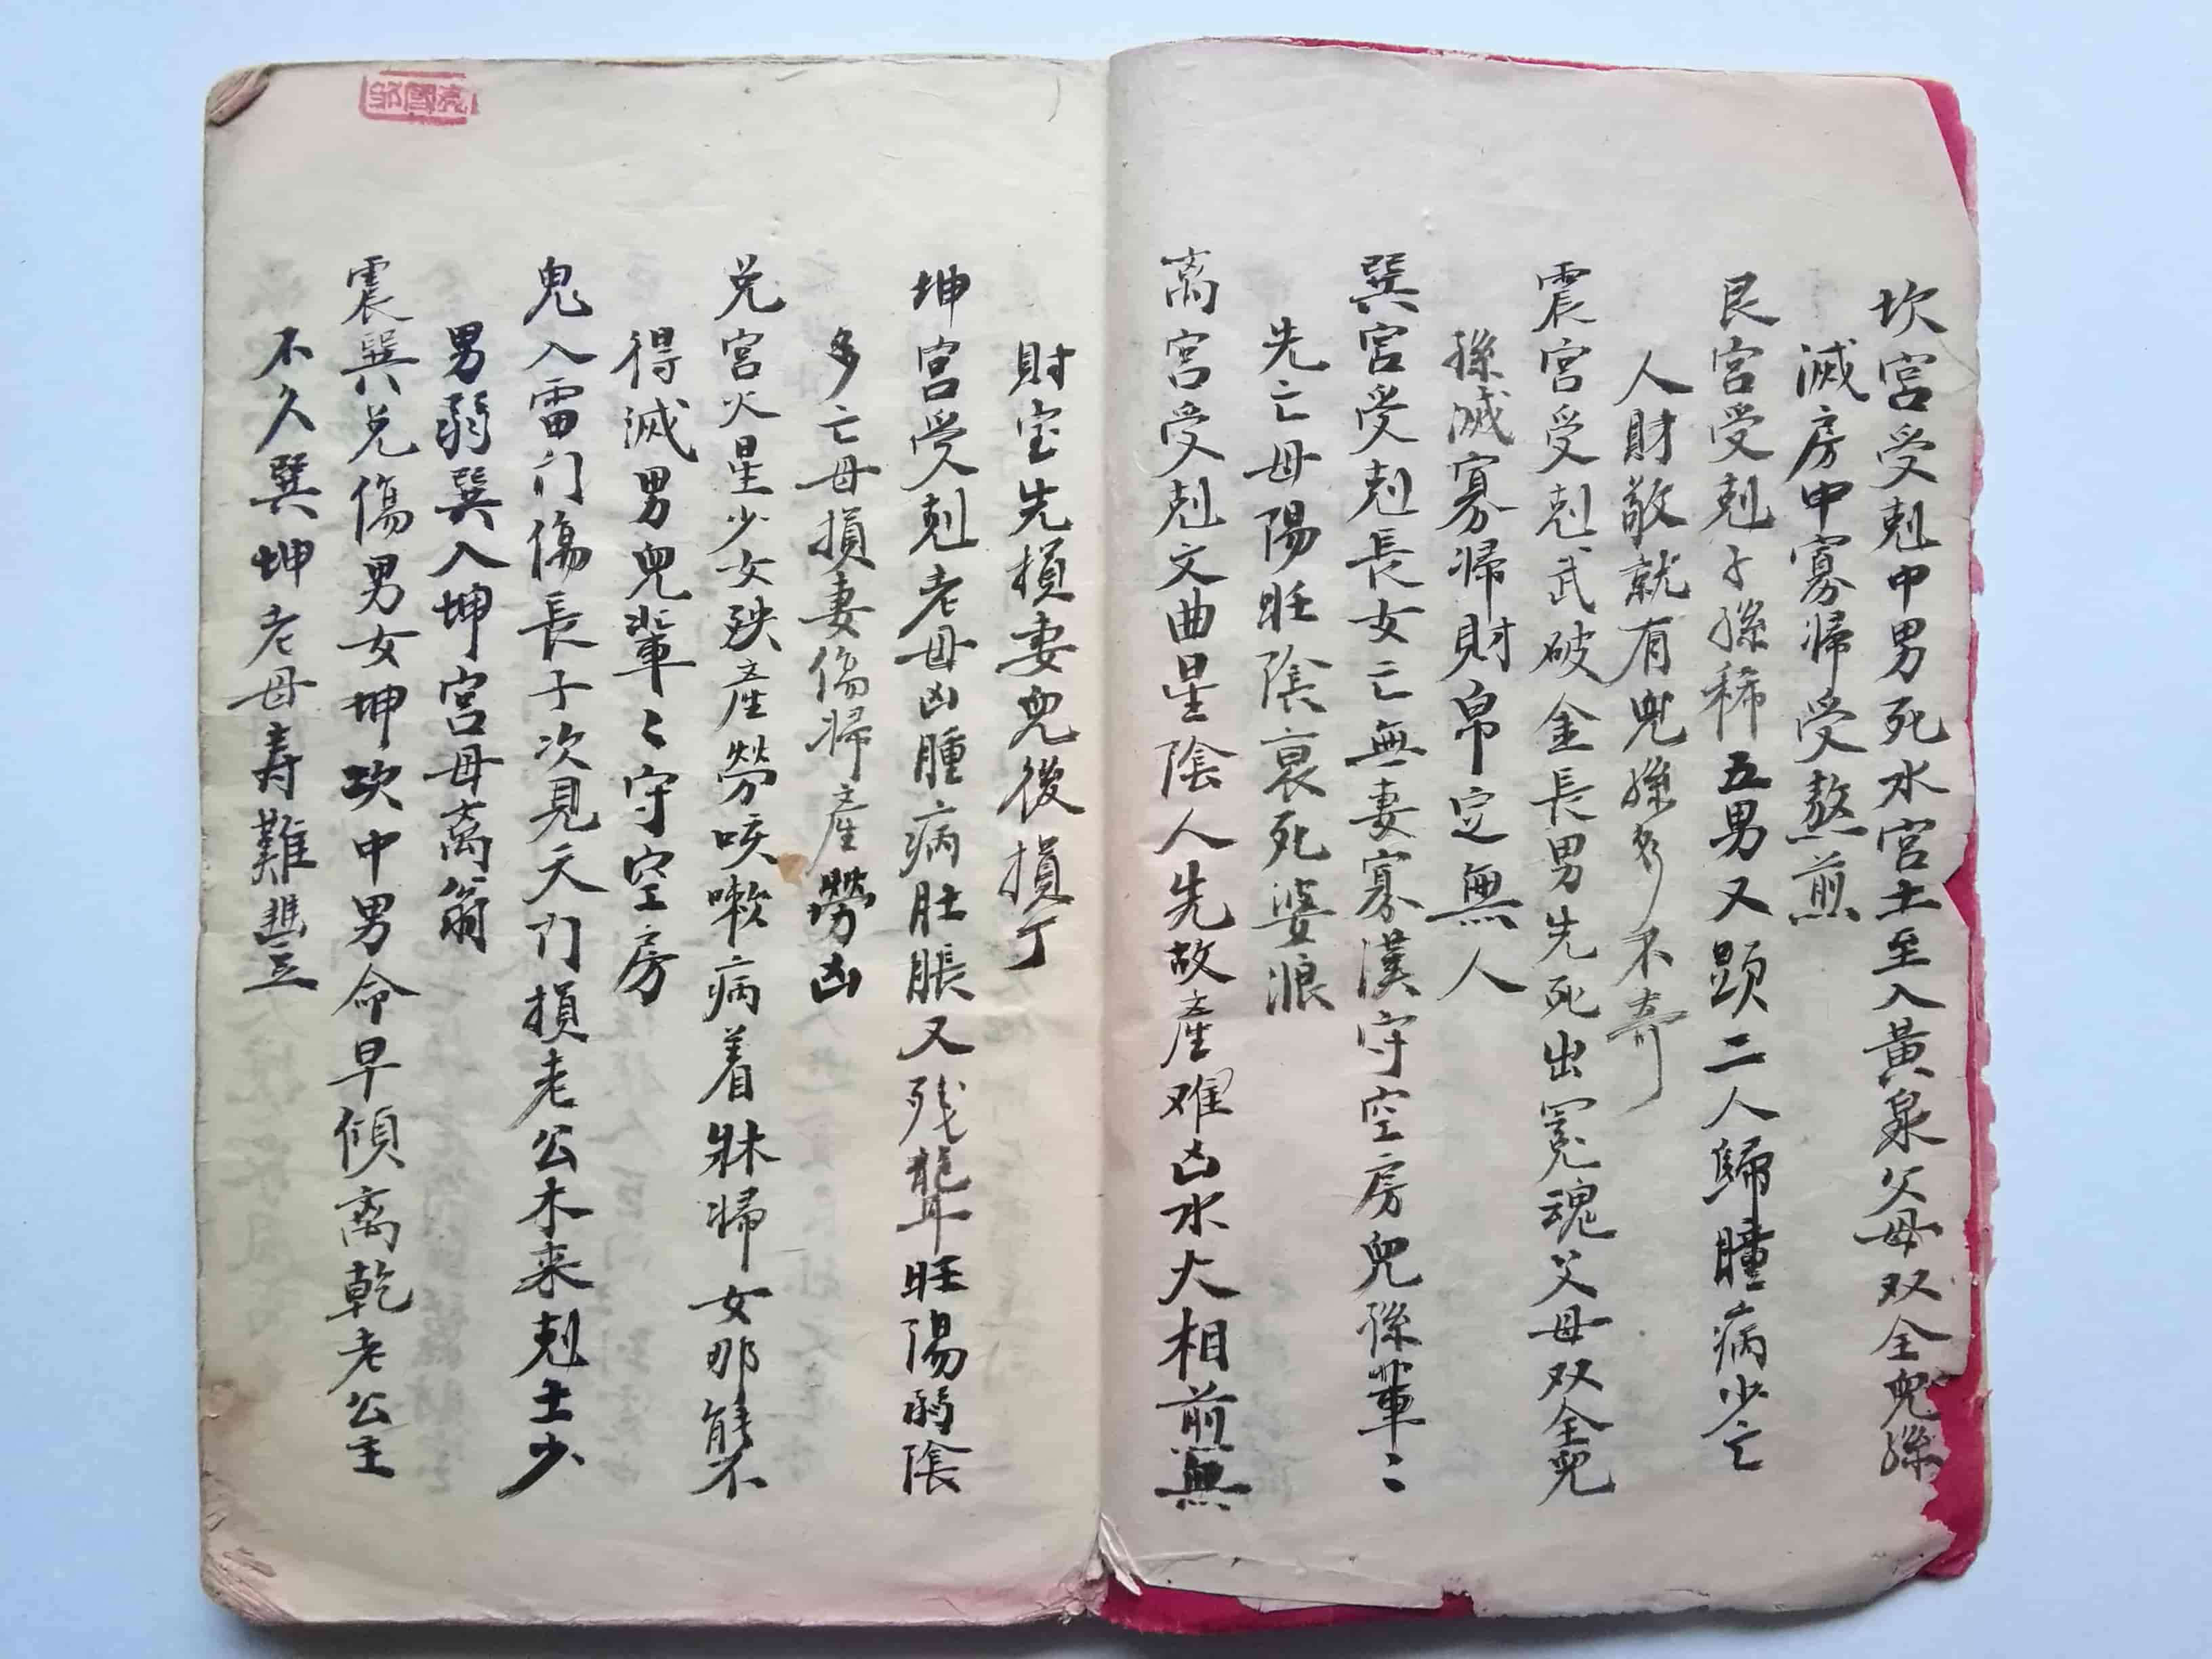 坎宮受剋中男死水宮土至入黃泉父母双全兒孫
滅房中寡帰受熬煎
艮宮受剋子孫稀五男又跟二人歸瞳病少亡
人財敬就有兒孫多不奇
震宮受剋武破金長男先死出冤魂父母双全兒
孫滅寡帰財帛定無人
巽宮受剋長女亡無妻寡漢守空房兒孫輩〻
先亡母陽旺陰衰死婆浪
离宮受剋文曲星陰人先故產难凶水大相前無
財宝先損妻兒後損丁
坤宮受剋老母凶腫病肚脹又残聾旺陽弱陰
多亡母損妻傷帰產勞凶
兑宮火星少女殃產勞咳嗽病着牀帰女那能不
得滅男兒輩〻守空房
鬼入雷门傷長子次見天门損老公木来剋土少
男弱巽入坤宮母离翁
震巽兑傷男女坤坎中男命早傾离乾老公主
不久巽坤老母寿難豊
邹國亮